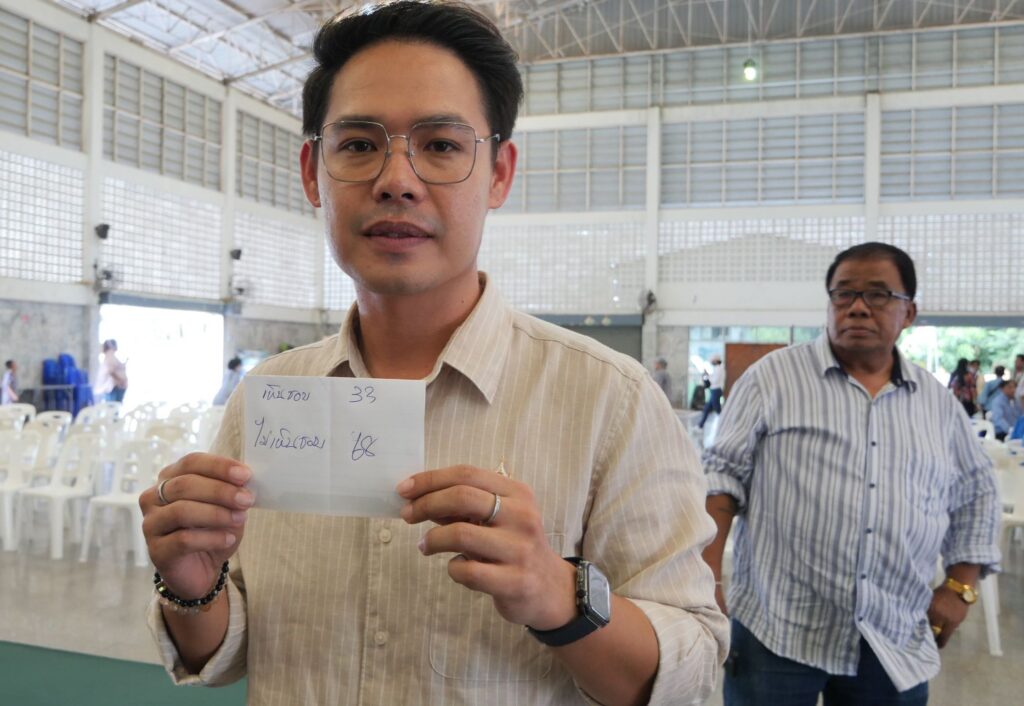 เห็นชอบ 33
ไม่เห็นชอบ 68